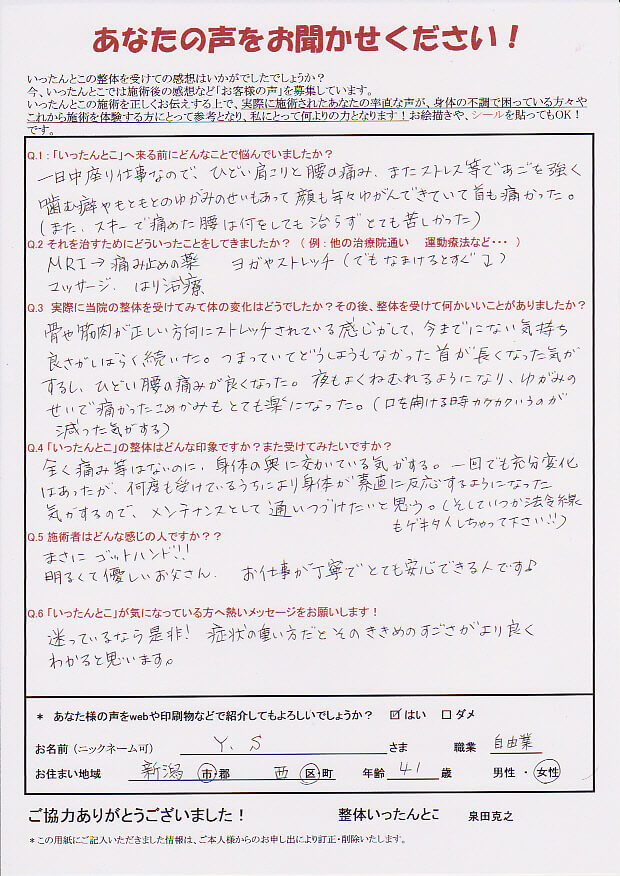 あなたの声をお聞かせください！
いったんとこの整体を受けての感想はいかがでしたでしょうか？
今、いったんとこでは施術後の感想など「お客様の声」を募集しています。
いったんとこの施術を正しくお伝えする上で、実際に施術されたあなたの率直な声が、身体の不調で困っている方々や
これから施術を体験する方にとって参考となり、私にとって何よりの力となります！お絵描きや、シールを貼ってもOK！
です。
Q.1：「いったんとこ」へ来る前にどんなことで悩んでいましたか？
一日中座り仕事なので、ひどい肩こりと腰の痛み、またストレス等であごを強く
噛む癖やもともとのゆがみのせいもあって顔も年々ゆがんできていて首も痛かった。
（また、スキーで痛めた腰は何をしても治らずとても苦しかった）
Q.2 それを治すためにどういったことをしてきましたか？（例：他の治療院通い　運動療法など・・・）
MRI→痛み止めの薬　ヨガやストレッチ（でもなまけるとすぐ↓）
マッサージ．はり治療
Q.3 実際に当院の整体を受けてみて体の変化はどうでしたか？その後、整体を受けて何かいいことがありましたか？
骨や筋肉が正しい方向にストレッチされている感じがして、今までにない気持ち
良さがしばらく続いた。つまっていてどうしようもなかった首が長くなった気が
するし、ひどい腰の痛みが良くなった。夜もよくねむれるようになり、ゆがみの
せいで痛かったこめかみもとても楽になった。（口を開ける時カクカクいうのが
減った気がする）
Q.4「いったんとこ」の整体はどんな印象ですか？また受けてみたいですか？
全く痛み等はないのに、身体の奥に効いている気がする。一回でも充分変化
はあったが、何度も受けているうちにより身体が素直に反応するようになった
気がするので、メンテナンスとして通いつづけたいと思う。（そしていつか法令線
もゲキタイしちゃって下さい!!）
Q.5 施術者はどんな感じの人ですか？？
まさに ゴットハンド!!
明るくて優しいお父さん．お仕事が丁寧でとても安心できる人です♪
Q.6「いったんとこ」が気になっている方へ熱いメッセージをお願いします！
迷っているなら是非！症状の重い方だとそのききめのすごさがより良く
わかると思います。
＊ あなた様の声をwebや印刷物などで紹介してもよろしいでしょうか？　☑はい　□ダメ
お名前（ニックネーム可）　Y．S　さま　職業　自由業
お住まい地域　新潟　市・郡　西　区・町　年齢　41　歳　男性・女性
ご協力ありがとうございました！　整体いったんとこ　泉田克之
＊この用紙にご記入いただきました情報は、ご本人様からのお申し出により訂正・削除いたします。